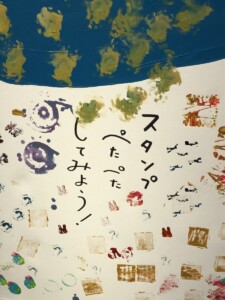 スタンプ
ぺたぺた
してみよう!